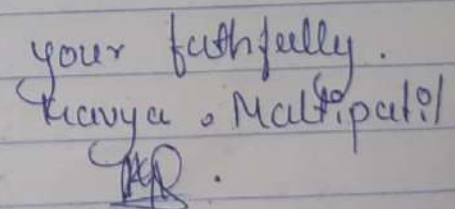 your fathfully.
Kavya . Maltipatil